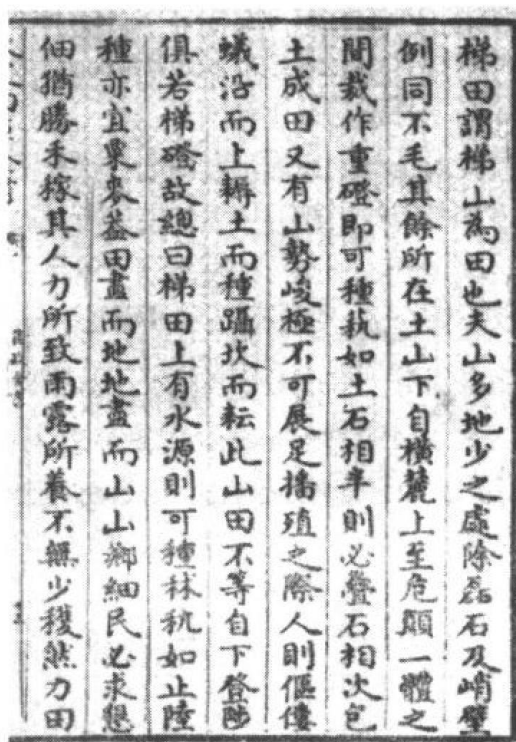 梯田謂梯山為田也夫山多地少之處除磊石及峭壁
例同不毛其餘所在土山下自橫麓上至危顛一體之
間裁作重磴即可種秇如土石相半則必疊石相次包
土成田又有山勢峻極不可展足播殖之際人則傴僂
蟻沿而上耨土而種躡坎而耘此山田不等自下登陟
俱若梯磴故總曰梯田上有水源則可種秫秔如止陸
種亦宜粟麥蓋田盡而地地盡而山山鄉細民必求懇
佃猶勝禾稼其人力所致雨露所養不無少穫然力田